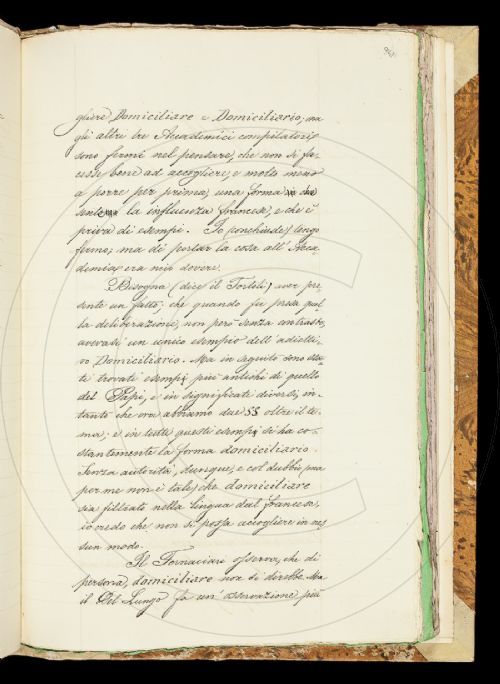 gliere Domiciliare e Domiciliario; ma
gli altri tre Accademici compilatori
sono fermi nel pensare, che non si fa-
cesse bene ad accogliere, e molto meno
a porre per prima, una forma che
sente la influenza francese, e che è
priva di esempi. Io (conchiude) tengo
fermo; ma di portar la cosa all'Acca-
demia era mio dovere.
Bisogna (dice il Tortoli) aver pre-
sente un fatto: che quando fu presa quel-
la deliberazione, non però senza contrasto,
avevasi un unico esempio dell'adietti-
vo Domiciliario. Ma in seguito sono sta-
ti trovati esempi più antichi di quello
del Papi, e in significati diversi; in-
tanto che ora abbiamo due §§ oltre il te-
ma; e in tutti questi esempi si ha co-
stantemente la forma domiciliare.
Senza autorità, dunque, e col dubbio, (ma
per me non è tale) che domiciliare
sia filtrato nella lingua dal francese,
io credo che non si possa accogliere in nes
sun modo.
Il Fornaciari osserva, che di
persona, domiciliare non si direbbe. Ma
il Del Lungo fa un'osservazione più